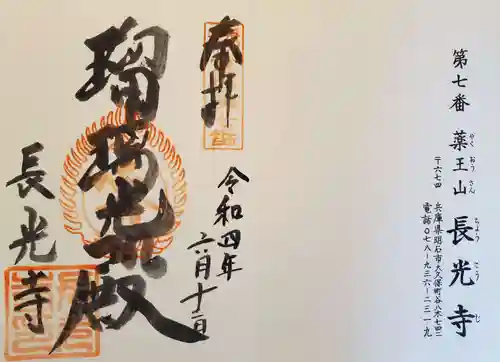 第七番 薬王山 長光寺
やくおうさん
ちょうこうじ
〒六七四
兵庫県明石市大久保町谷八木七四二
電話〇七八-九三六-二三一九
奉拝
令和四年六月十二日
瑠璃光殿
長光寺